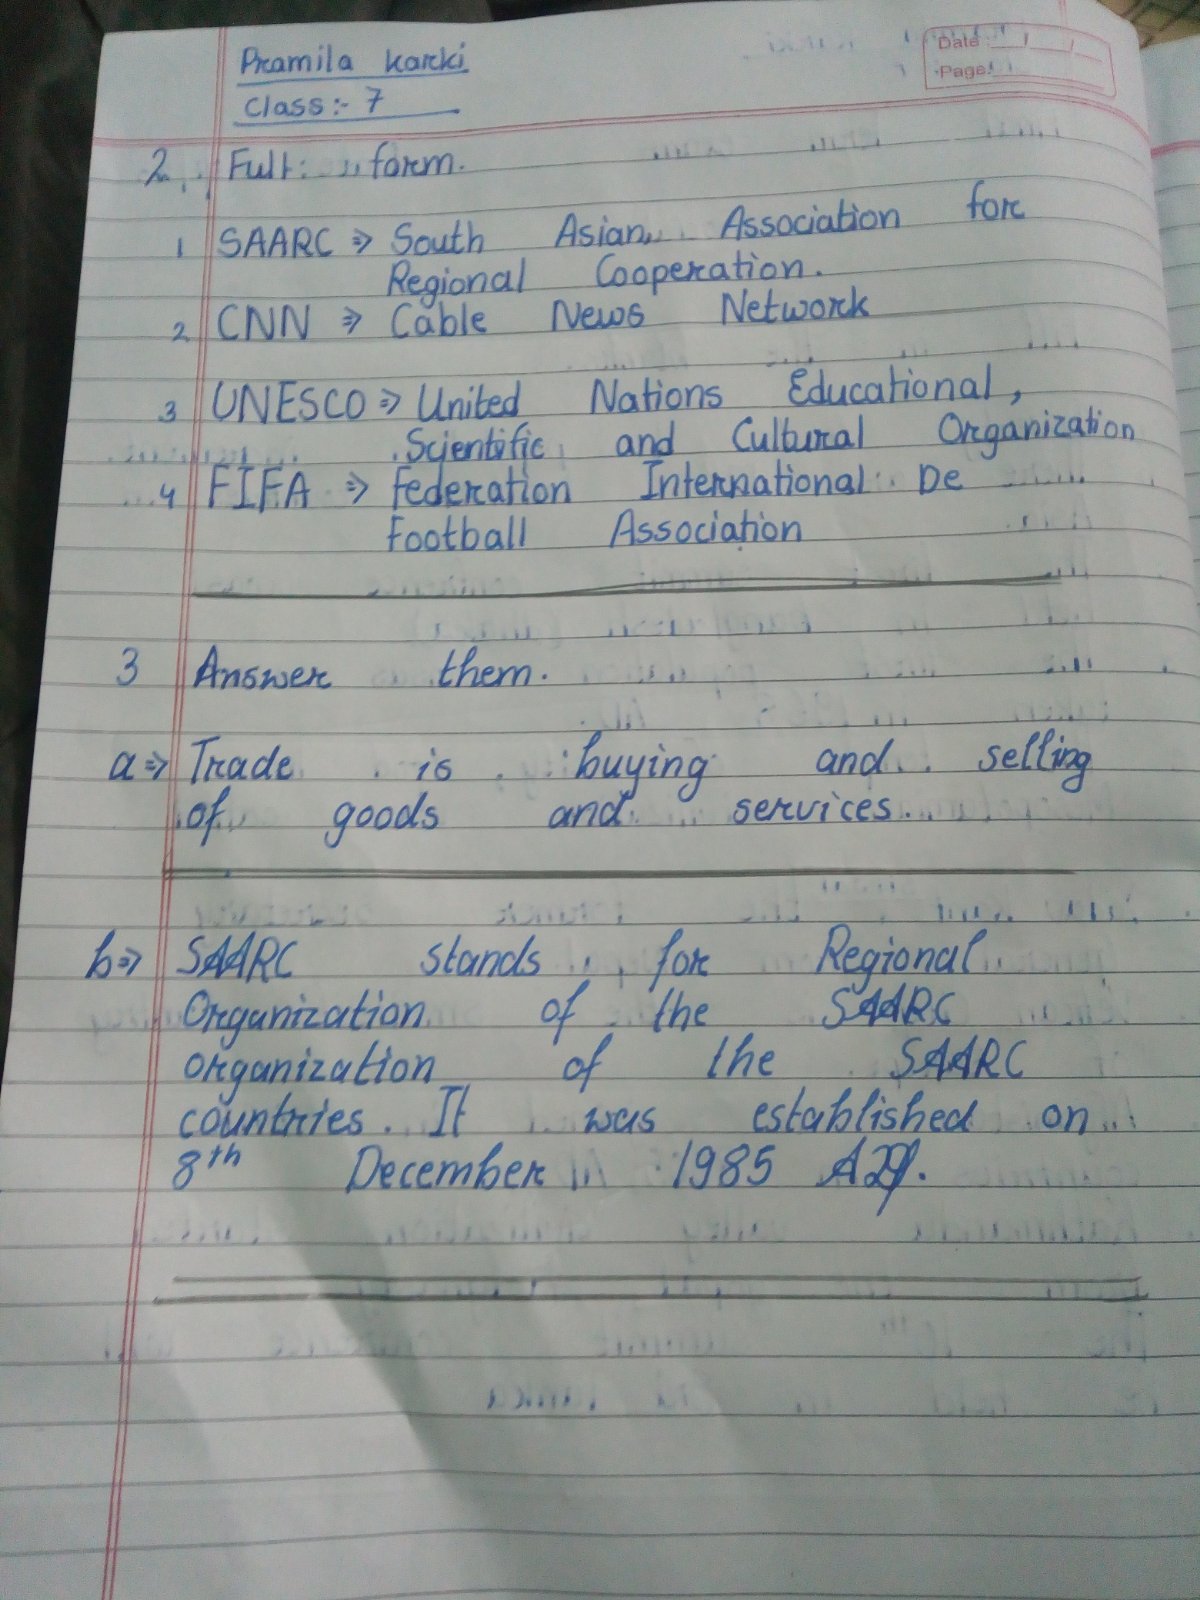 Pramila Karki
Class:- 7
Date
Page:
2. Full form.
1 SAARC => South Asian Association for
Regional Cooperation.
2 CNN => Cable News Network
3 UNESCO => United Nations Educational,
Scientific and Cultural Organization
4 FIFA => Federation International De
Football Association
3 Answer them.
a => Trade is buying and selling
of goods and services.
b => SAARC stands for Regional
Organization of the SAARC
organization of the SAARC
countries. It was established on
8th December 1985